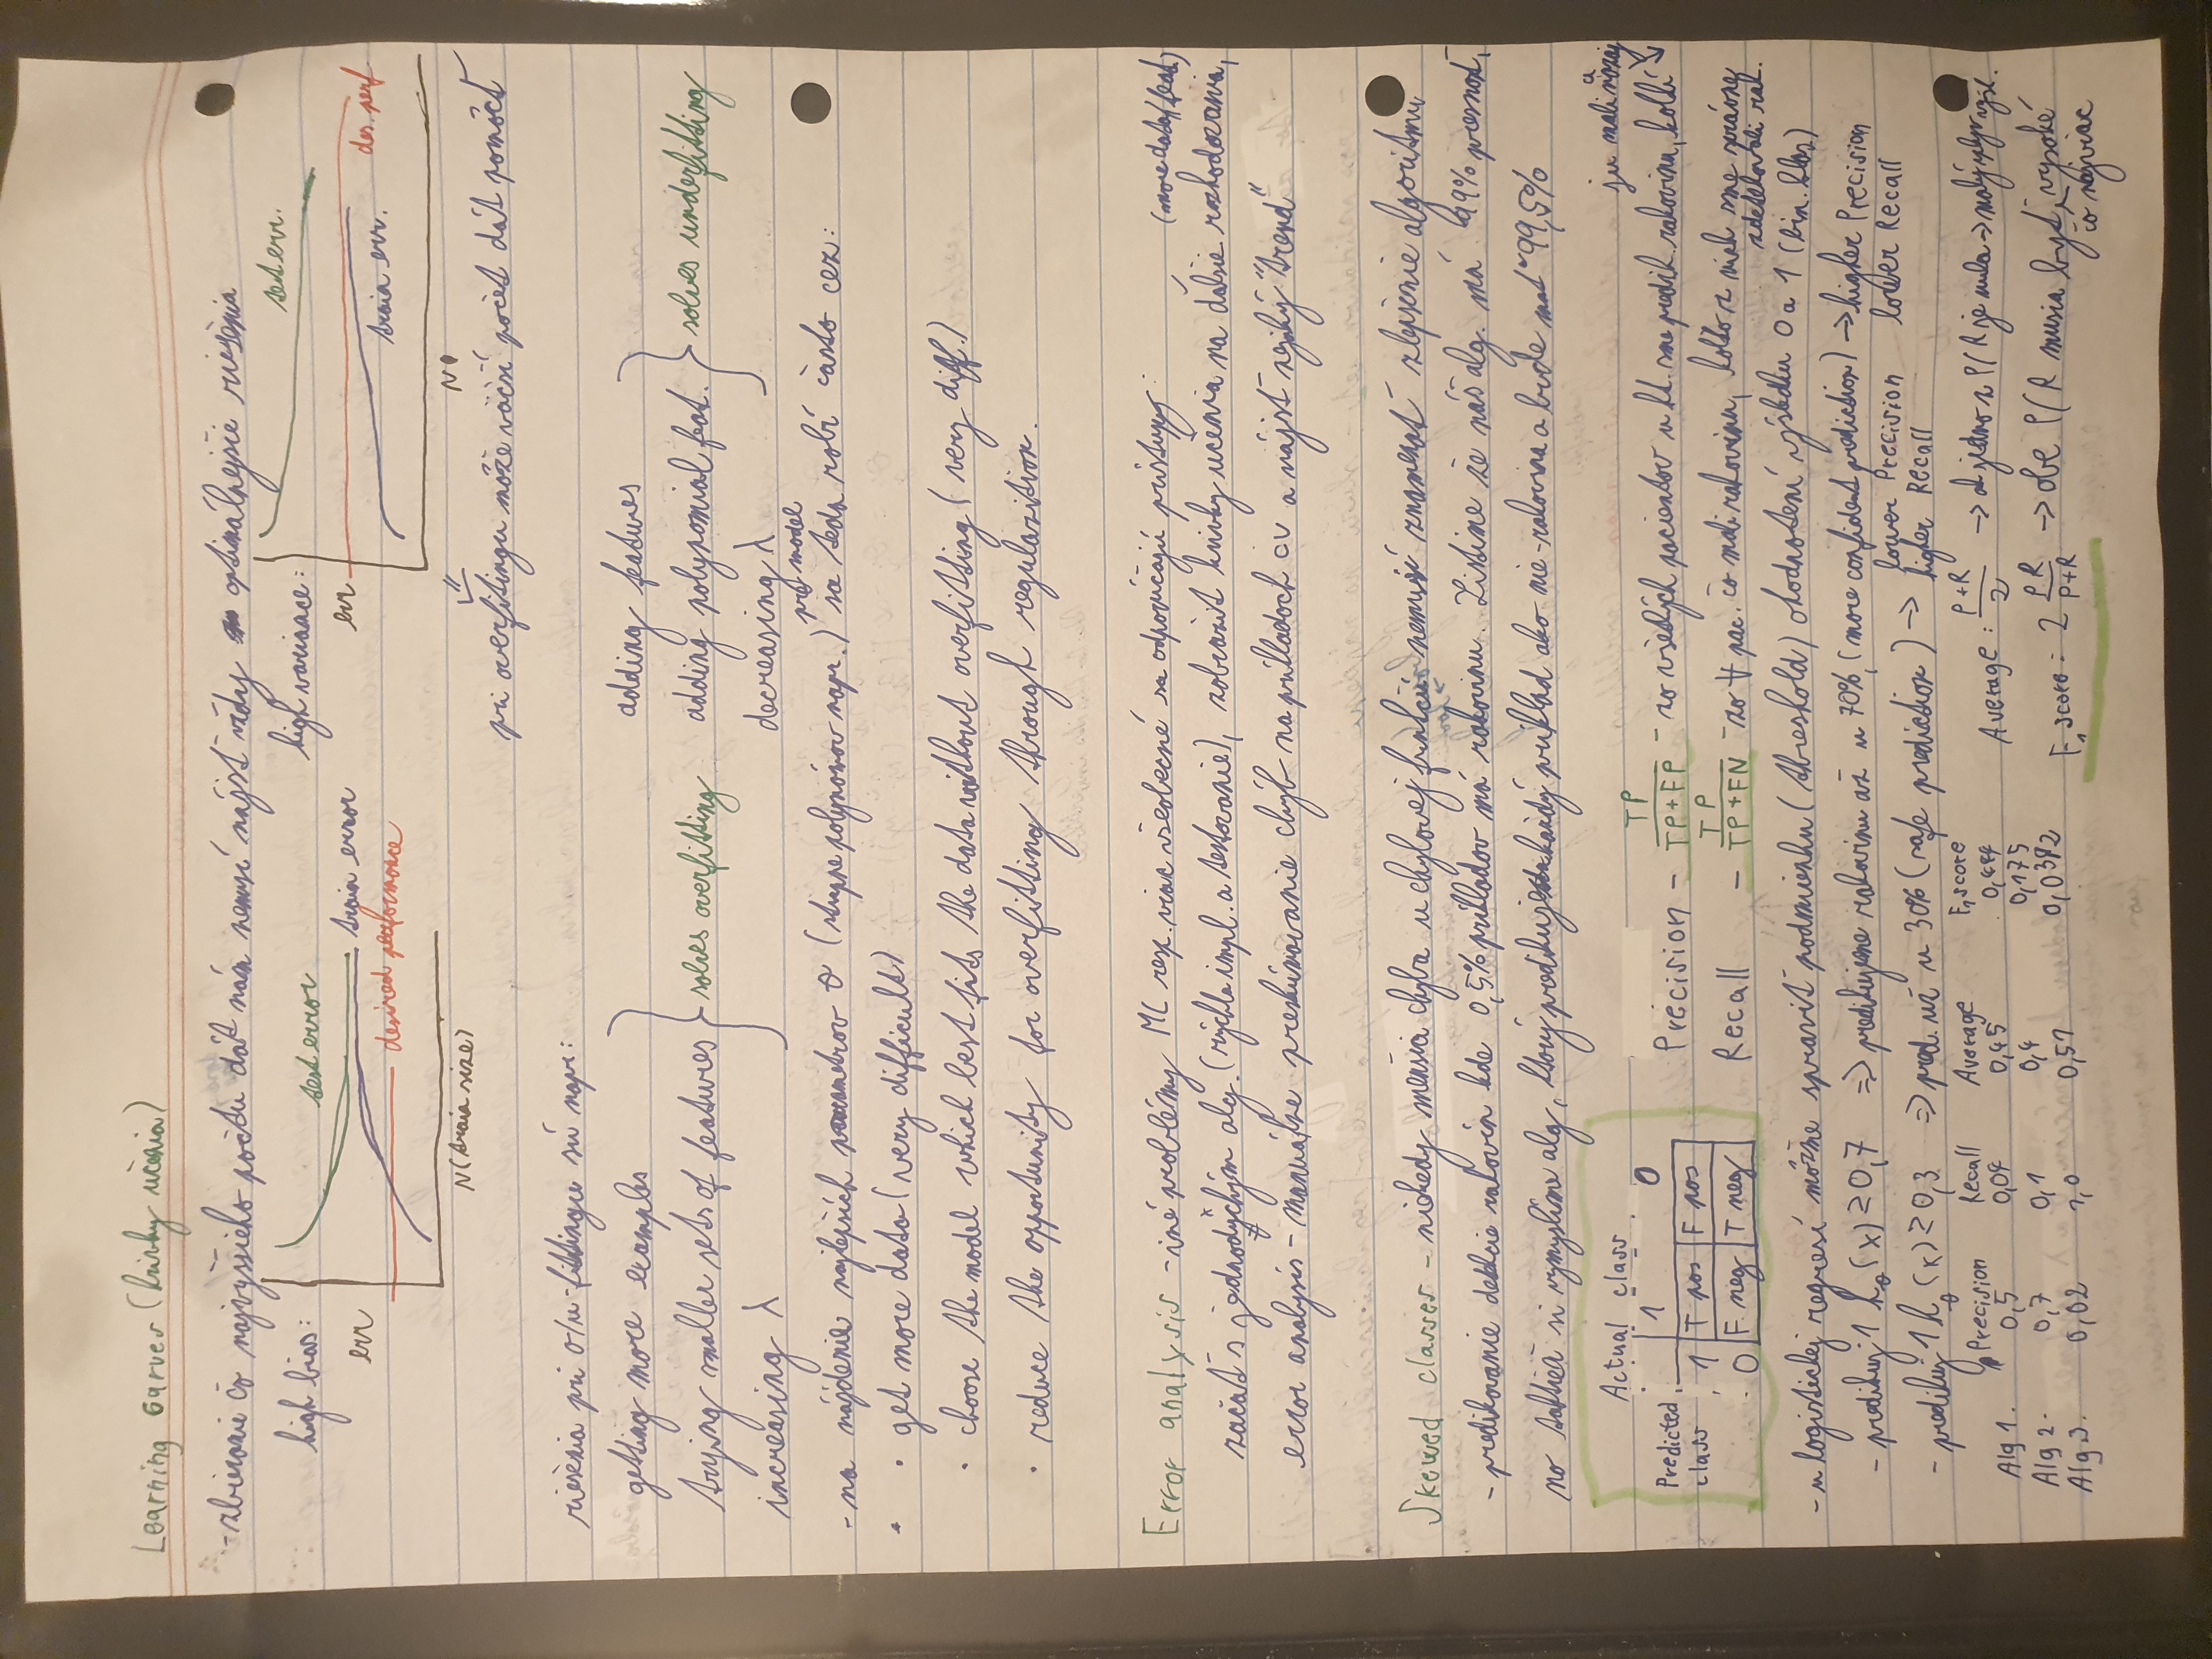 Learning Curves (krivky učenia)
- zbieranie čo najvyššieho počtu dát nám nemusí nájsť vždy optimálnejšie riešenia
high bias:
err
test error
train error
desired performance
N (train size)
high variance:
err
test err.
des. perf
train err.
N
pri overfitingu môže väčší počet dát pomôcť
riešenia pri o/u-fittingu sú napr:
getting more examples
trying smaller sets of features
increasing λ
solves overfitting
adding features
adding polynomial feat.
decreasing λ
solves underfitting
pre model
- na nájdenie najlepších parametrov θ (stupne polynómov napr.) sa teda robí často cez:
· get more data (very difficult)
· choose the model which best fits the data without overfitting (very diff.)
· reduce the opportunity for overfitting through regularition.
Error analysis - iné problémy ML resp. viac všeobecné sa odporúčajú prístupy:
(more data/feat.)
začať s jednoduchým alg. (rýchla impl. a testovanie), zobraziť krivky učenia na ďalšie rozhodovania,
error analysis - manuálne preskúmavanie chýb na príkladoch cv a nájsť nejaký "trend"
Skewed classes - niekedy menšia chyba u chybovej funkcií nemusí znamenať zlepšenie algoritmu
- predikovanie detekcie rakovín kde 0,5% príkladov má rakovinu. Zistíme že náš alg. má 99% presnosť,
no taktiež si vymyslíme alg, ktorý predikuje každý príklad ako nie-rakovina a bude mať 99,5%
Actual class
1 0
Predicted class
1 T pos F pos
0 F neg T neg
Precision - TP / TP+FP - zo všetkých pacientov u kt. sme predik. rakovinu, koľkí
ju mali naozaj
Recall - TP / TP+FN - zo ∀ pac. čo mali rakovinu, koľko z nich sme správne
zdetekovali rak.
- u logistickej regresí môžme spraviť podmienku (threshold) ohodnotení výsledku 0 a 1 (bin. klas)
- predikuj 1 hθ(x) ≥ 0,7 => predikujeme rakovinu až u 70%, (more confident prediction) → higher Precision
lower Recall
- predikuj 1 hθ(x) ≥ 0,3 => pred. už u 30% (safe prediction) → lower Precision
higher Recall
Precision Recall Average F1 score
Alg 1. 0,5 0,04 0,45 0,444
Alg 2. 0,7 0,1 0,4 0,175
Alg 3. 0,02 1,0 0,51 0,0392
Average: P+R / 2 → ak jedno z P/R je nula → malý vplyv
F1 score = 2 PR / P+R → obe P/R musia byť čo najviac vysoké